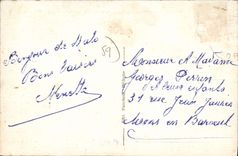 Bonjour de Malo
Bons baisers
59
Monsieur et Madame
Georges Perrin
et leurs enfants
31 rue Jean Jaurès
Mons en Baroeul